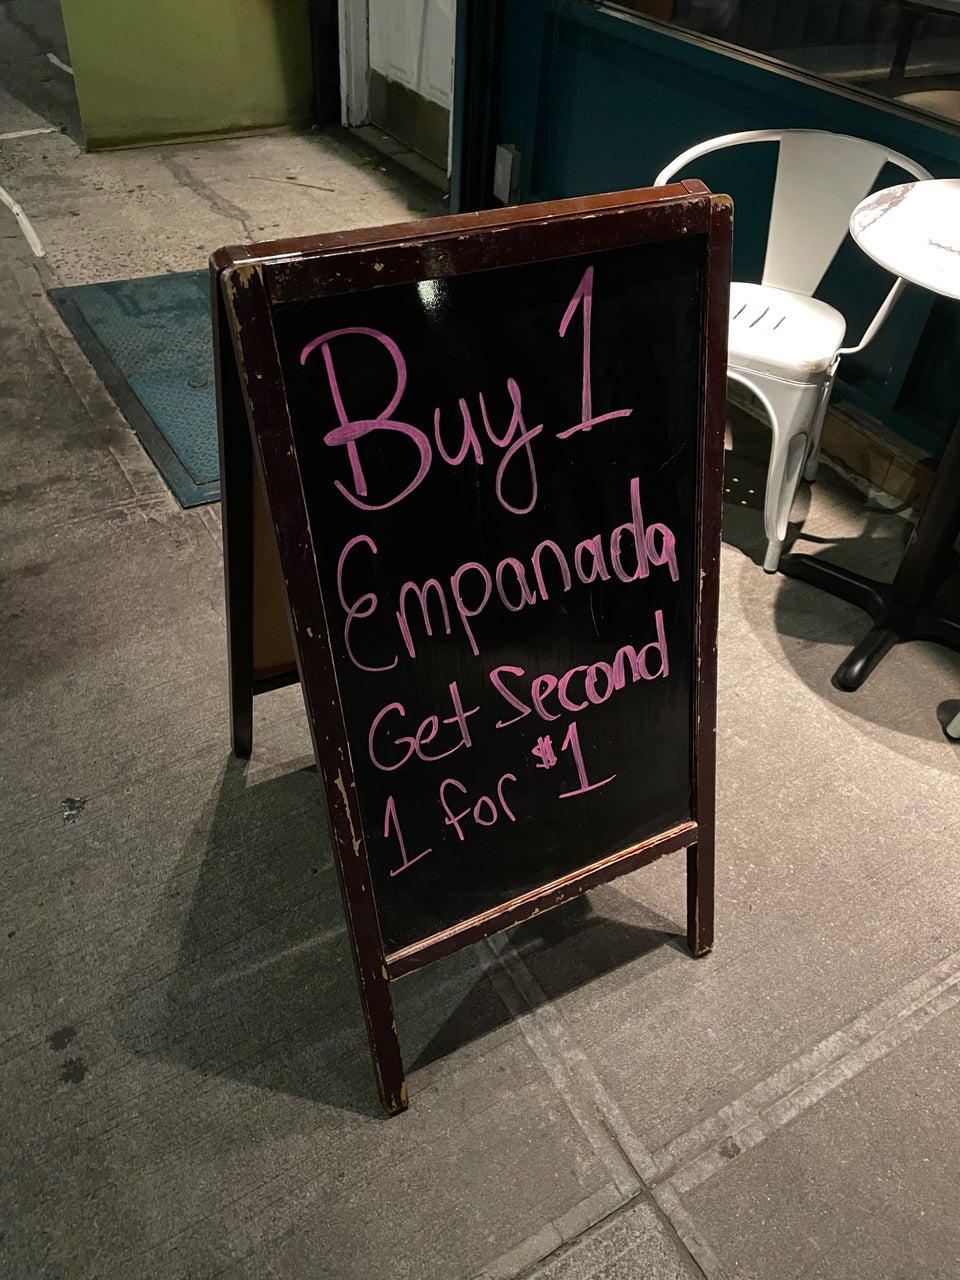 Buy 1
Empanada
Get Second
1 for $1